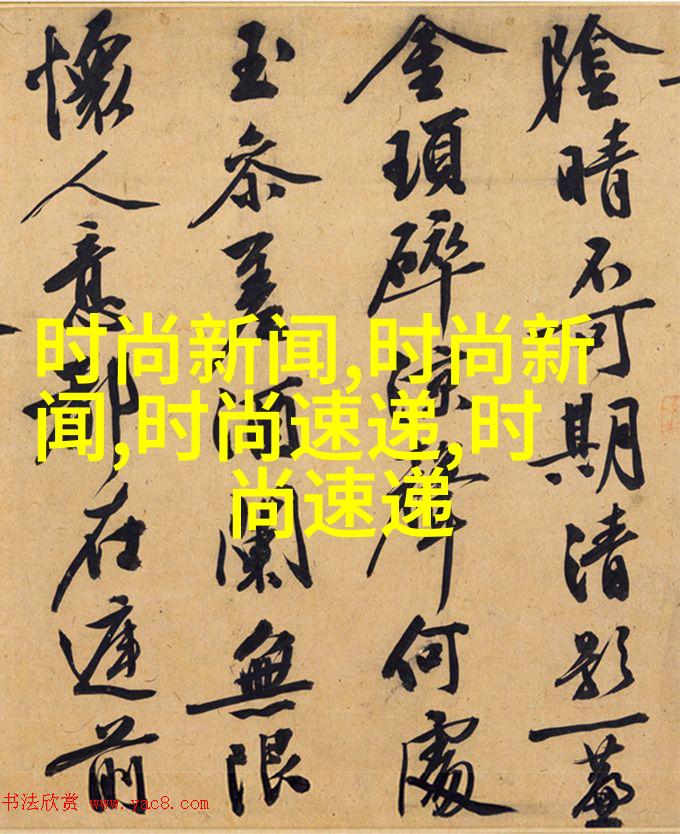 陰晴不可期清影一
金瑣碎涼聲何處
玉參差酒闌無限
懷人意都在前
时尚新闻,时尚新
闻,时尚速递,时
尚速递
书法欣赏 www.yac8.com